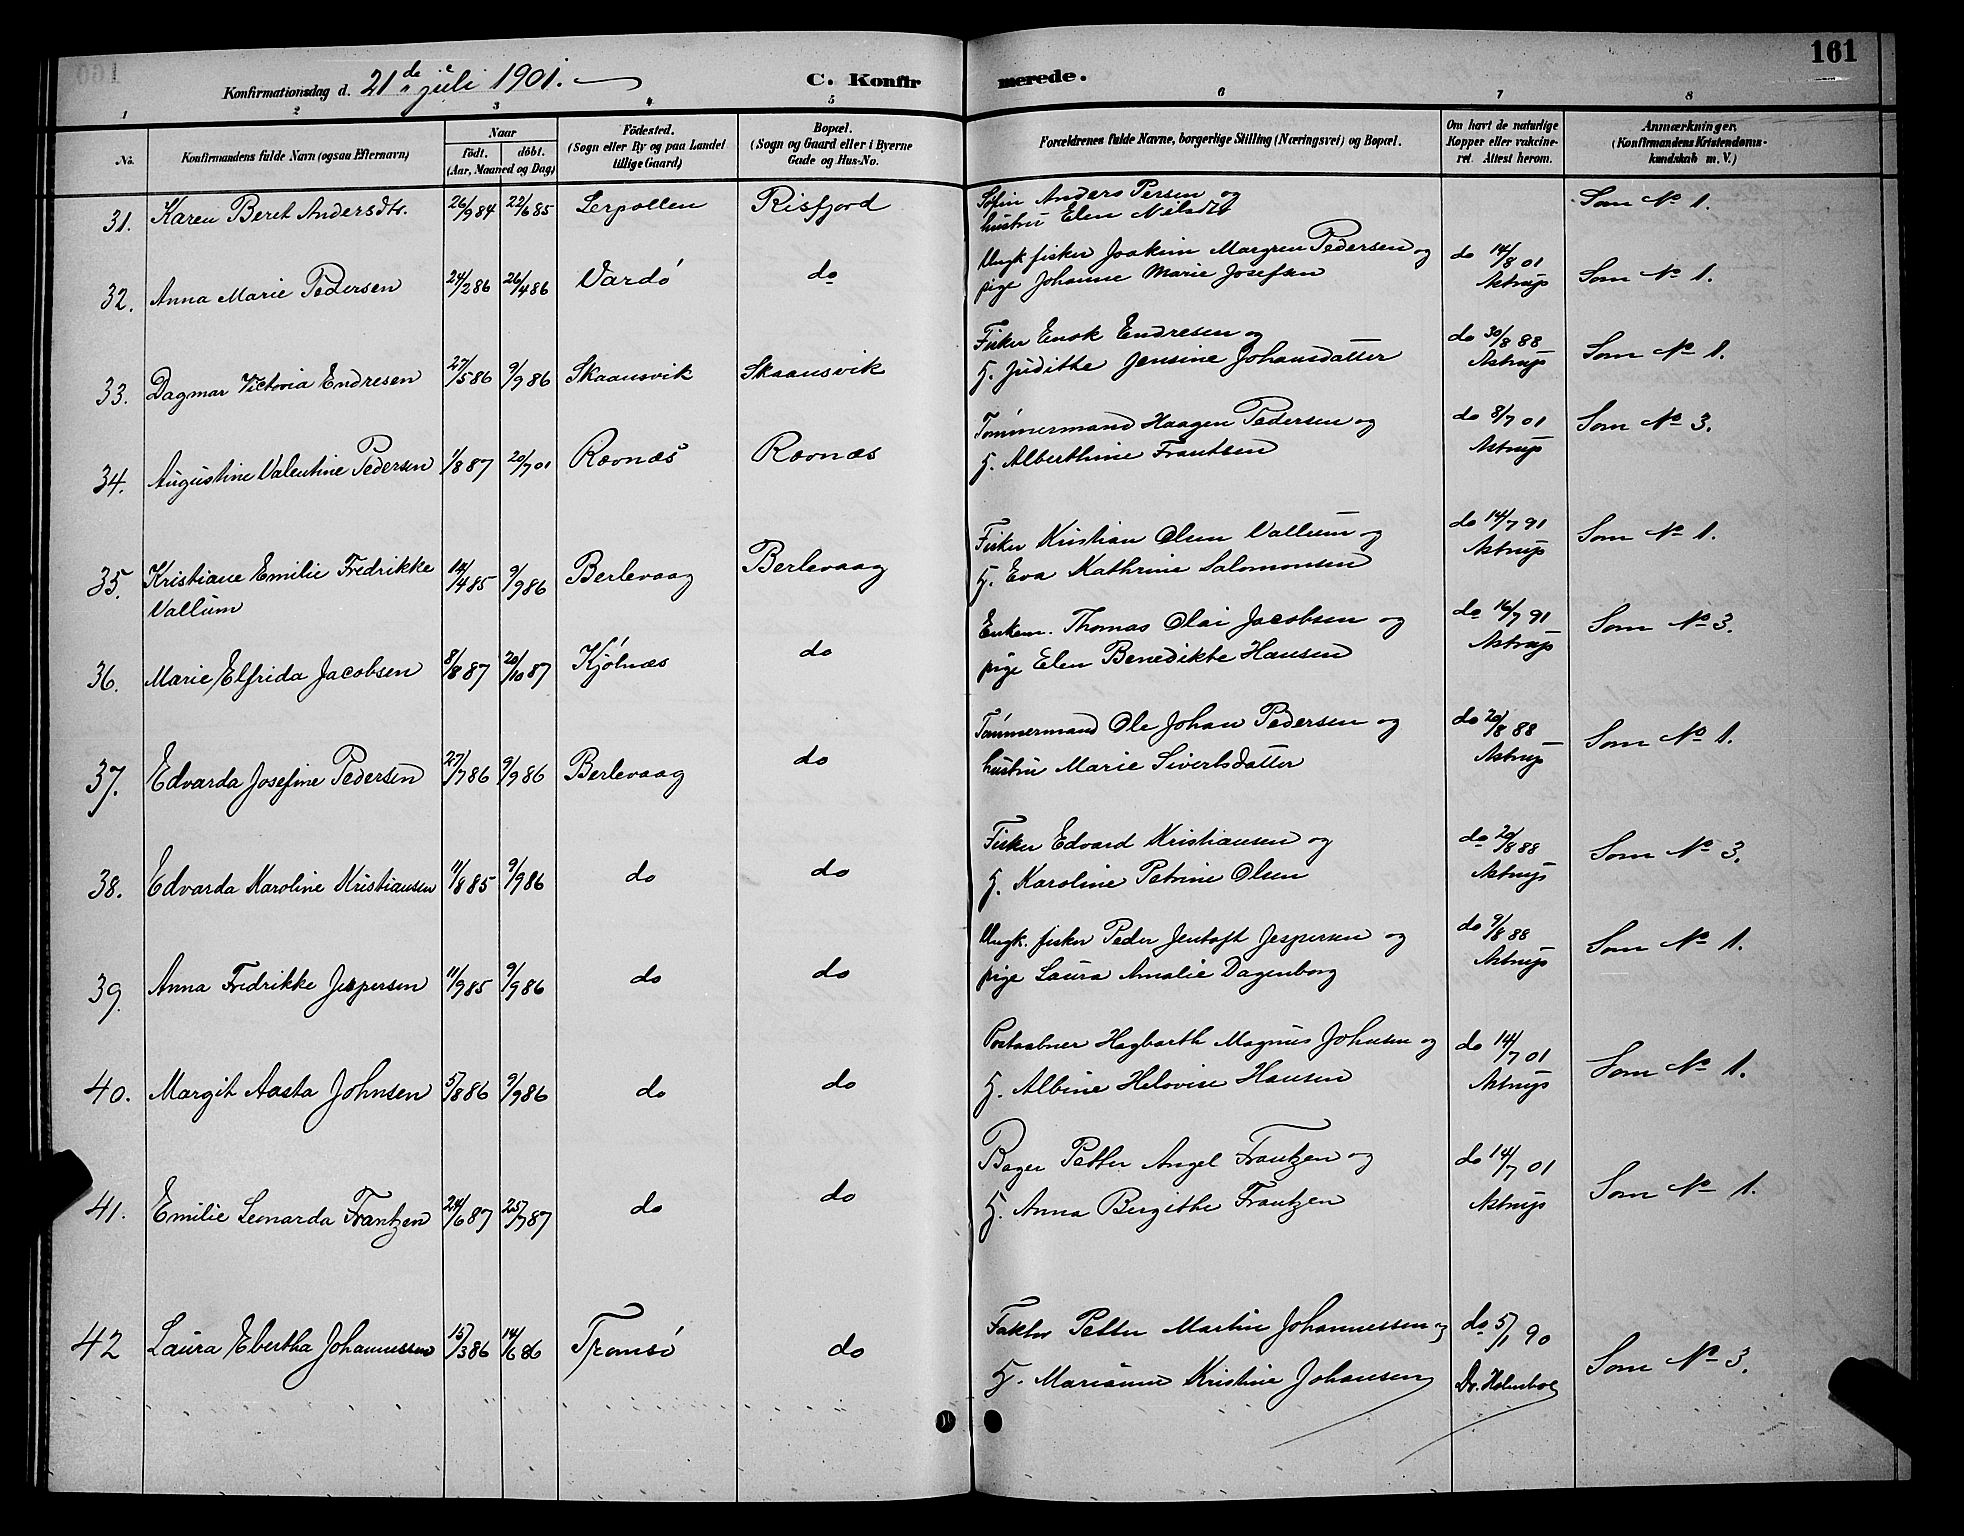 161
Konfirmationsdag d. 21de juli 1901.
C. Konfirmerede.
1 2 3 4 5 6 7 8
No. Konfirmandens fulde Navn (ogsaa Efternavn)
Naar
födt. döbt.
(Aar, Maaned og Dag)
Födested.
(Sogn eller By og paa Landet
tillige Gaard)
Bopæl.
(Sogn og Gaard eller i Byerne
Gade og Hus-No.
Forældrenes fulde Navne, borgerlige Stilling (Næringsvei) og Bopæl.
Om havt de naturlige
Kopper eller vaccine-
ret. Attest herom.
Anmærkninger.
(Konfirmandens Kristendoms-
kundskab m. V.)
31. Karen Beret Andersdtr. 26/9 84 22/6 85 Lerpollen Risfjord
Anders Persen og
hustru Elen Nilsdtr
Som No 1.
32. Anna Marie Pedersen 24/2 86 26/4 86 Vardö do
Ungk fisker Joakim Margren Pedersen og
pige Johanne Marie Josefsen
do 14/8 01
Astrup
Som No 1.
33. Dagmar Victoria Endresen 27/5 86 9/9 86 Skaansvik Skaansvik
Fisker Enok Endresen og
H. Judithe Jensine Johansdatter
do 30/8 88
Astrup
Som No 1.
34. Augustine Valentine Pedersen 1/8 87 20/7 01 Ravnæs Ravnæs
Tømmermand Haagen Pedersen og
H. Alberthine Frantsen
do 8/7 01
Astrup
Som No 3.
35. Kristiane Emilie Fredrikke
Vallum
14/4 85 9/9 86 Berlevaag Berlevaag
Fisker Kristian Olsen Vallum og
H. Eva Kathrine Salomonsen
do 14/7 91
Astrup
Som No 1.
36. Marie Elfrida Jacobsen 8/8 87 20/10 87 Kjölnæs do
Enkem. Thomas Olai Jacobsen og
pige Elen Benedikte Hansen
do 16/7 91
Astrup
Som No 3.
37. Edvarda Josefine Pedersen 27/7 86 9/9 86 Berlevaag do
Tømmermand Ole Johan Pedersen og
hustru Marie Sivertsdatter
do 20/8 88
Astrup
Som No 1.
38. Edvarda Karoline Kristiansen 11/8 85 9/9 86 do do
Fisker Edvard Kristiansen og
H. Karoline Petrine Olsen
do 20/8 88
Astrup
Som No 3.
39. Anna Fredrikke Jespersen 11/9 85 9/9 86 do do
Ungk. fisker Peder Jentoft Jespersen og
pige Laura Amalie Dagenborg
do 9/8 88
Astrup
Som No 1.
40. Margit Aasta Johnsen 5/8 86 9/9 86 do do
Postaabner Hagbarth Magnus Johnsen og
H. Albine Helovise Hansen
do 14/7 01
Astrup
Som No 1.
41. Emilie Leonarda Frantzen 24/6 87 25/7 87 do do
Bager Petter Angel Frantzen og
H. Anna Bergithe Frantzen
do 14/7 01
Astrup
Som No 1.
42 Laura Ebertha Johannessen 15/3 86 14/6 86 Tromsö do
Faktor Petter Martin Johannessen og
H. Marianne Kristine Johansen
do 5/1 90
Dr. Holmboe
Som No 3.